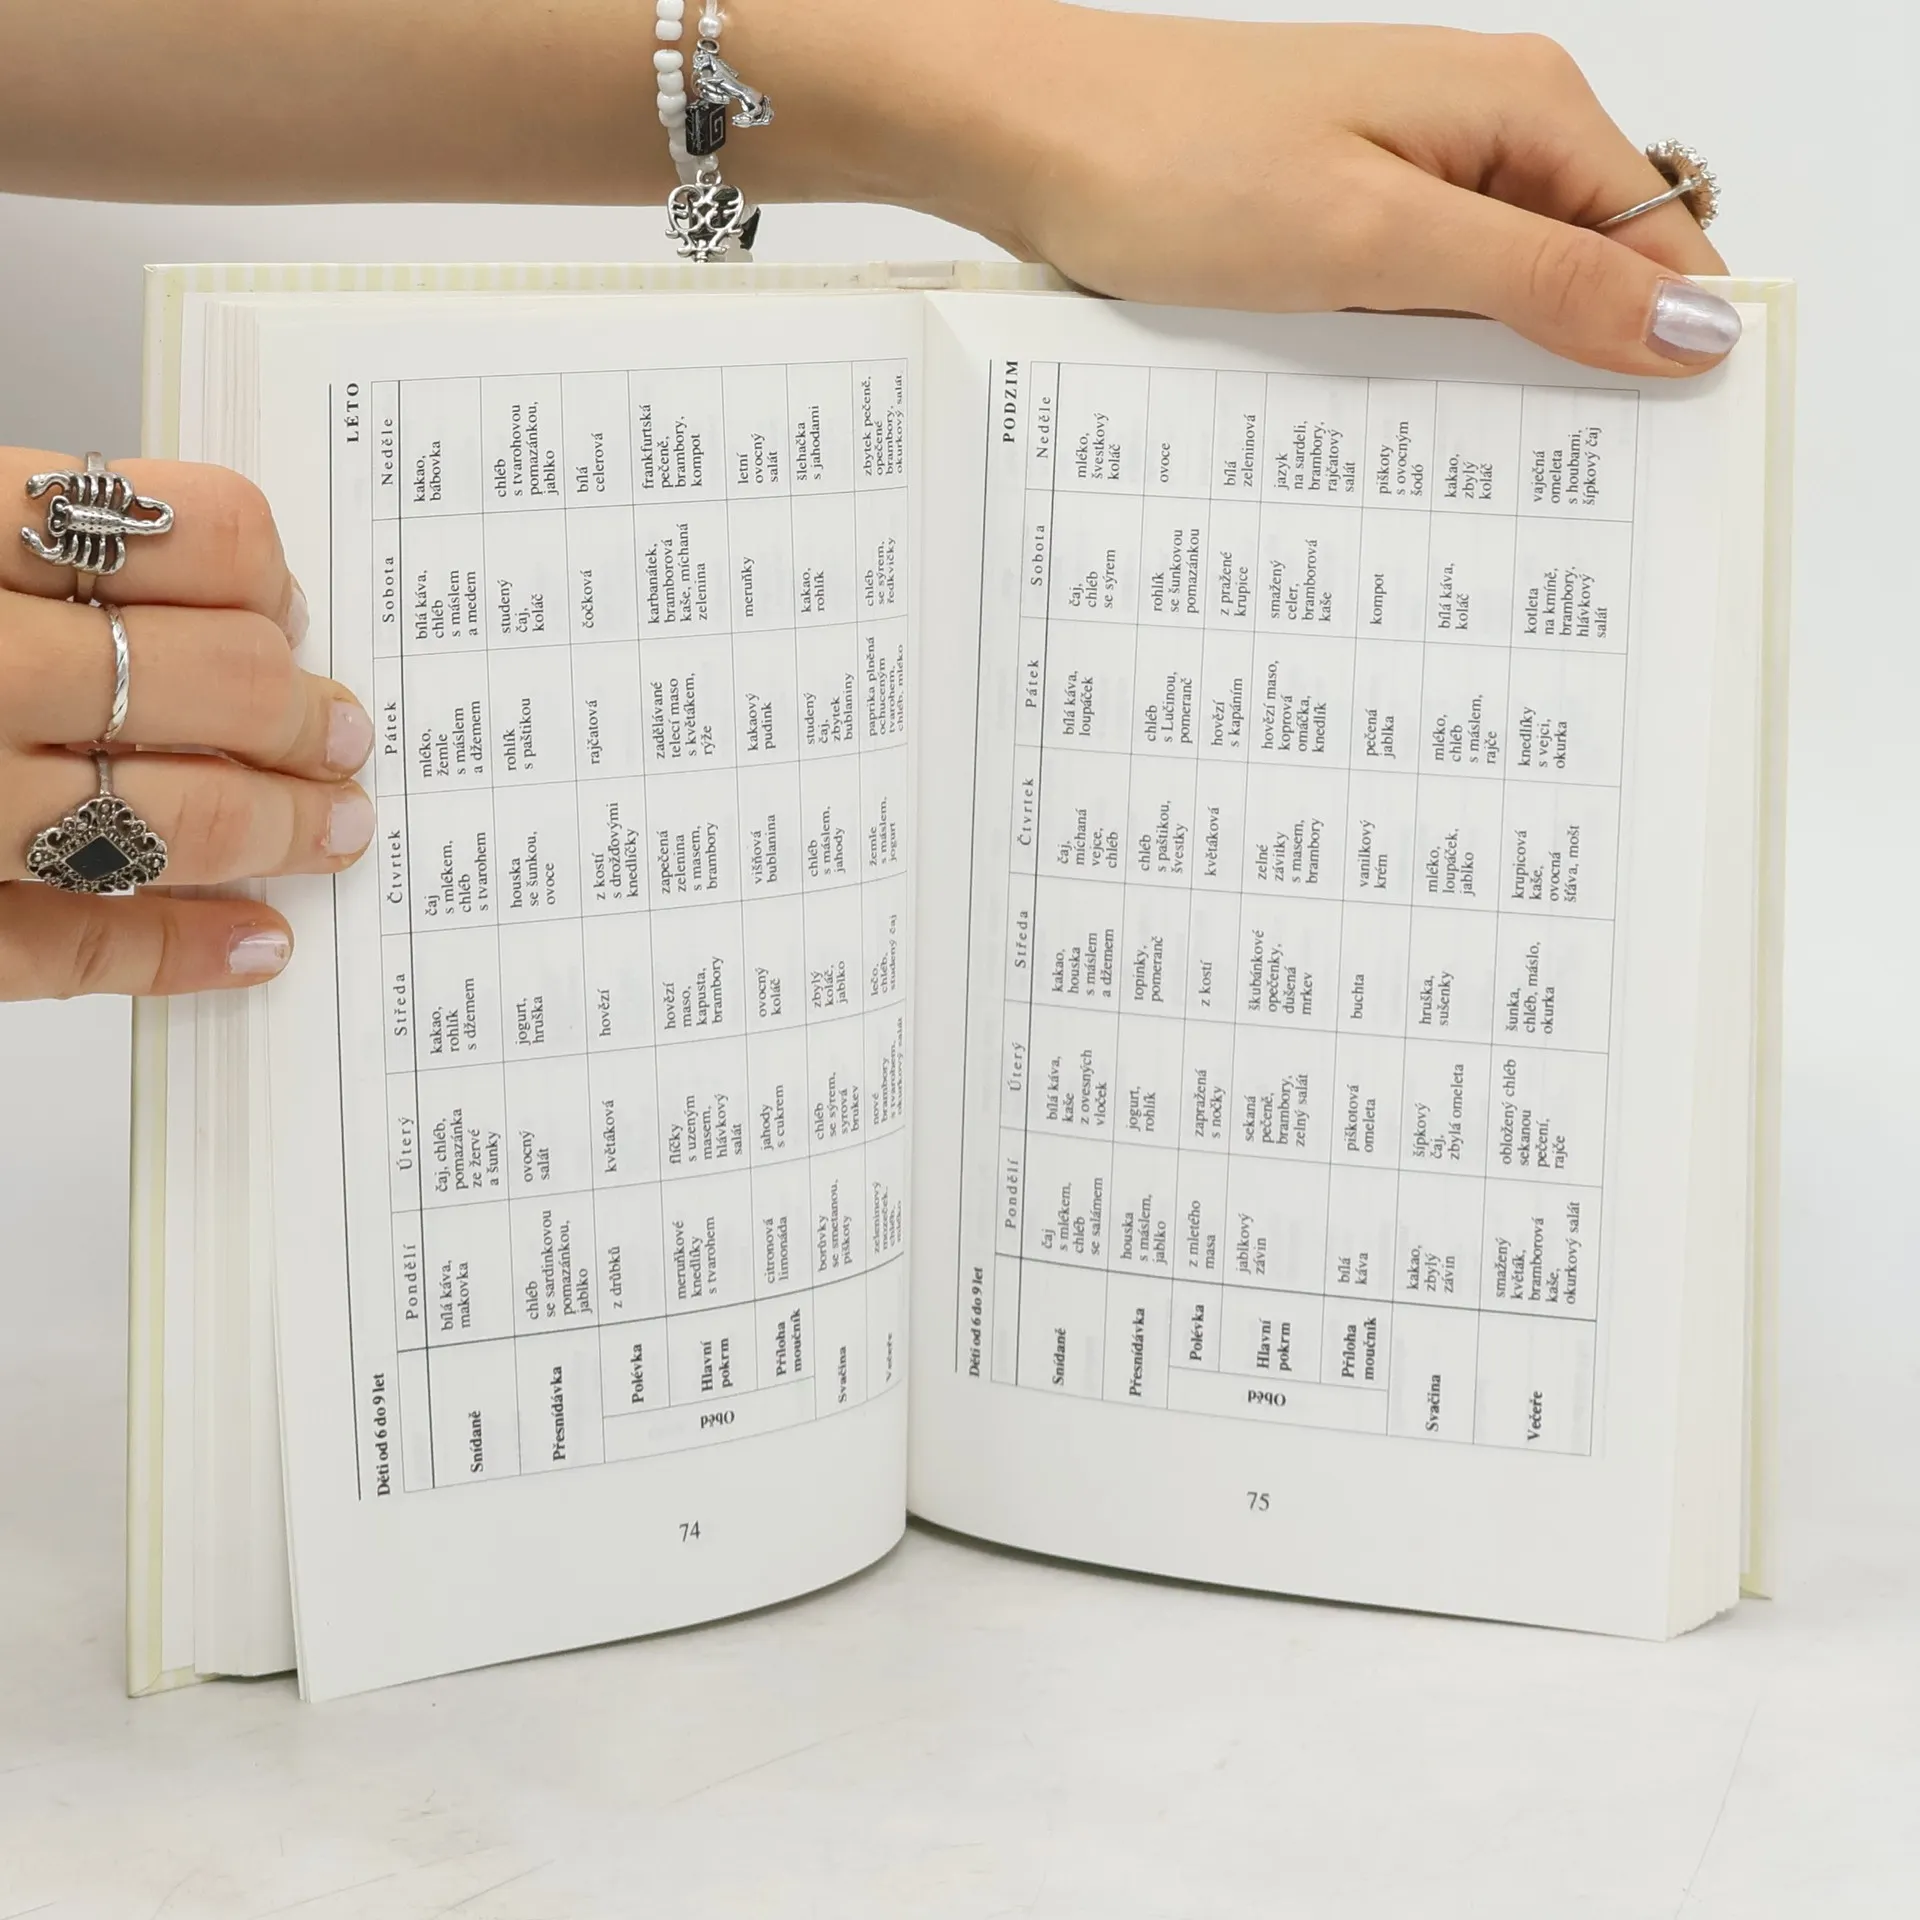 Děti od 6 do 9 let
LÉTO
Pondělí
Úterý
Středa
Čtvrtek
Pátek
Sobota
Neděle
Snídaně
bílá káva,
makovka
čaj, chléb,
pomazánka
ze žervé
a šunky
kakao,
rohlík
s džemem
čaj
s mlékem,
chléb
s tvarohem
mléko,
žemle
s máslem
a džemem
bílá káva,
chléb
s máslem
a medem
kakao,
bábovka
Přesnídávka
chléb
se sardinkovou
pomazánkou,
jablko
ovocný
salát
jogurt,
hruška
houska
se šunkou,
ovoce
rohlík
s paštikou
studený
čaj,
koláč
chléb
s tvarohovou
pomazánkou,
jablko
Oběd
Polévka
z drůbků
květáková
hovězí
z kostí
s drožďovými
knedlíčky
rajčatová
čočková
bílá
celerová
Hlavní
pokrm
meruňkové
knedlíky
s tvarohem
flíčky
s uzeným
masem,
hlávkový
salát
hovězí
maso,
kapusta,
brambory
zapečená
zelenina
s masem,
brambory
zadělávané
telecí maso
s květákem,
rýže
karbanátek,
bramborová
kaše, míchaná
zelenina
frankfurtská
pečeně,
brambory,
kompot
Příloha
moučník
citronová
limonáda
jahody
s cukrem
ovocný
koláč
višňová
bublanina
kakaový
pudink
meruňky
letní
ovocný
salát
Svačina
borůvky
se smetanou,
piškoty
chléb
se sýrem,
syrová
brukev
zbylý
koláč,
jablko
chléb
s máslem,
jahody
studený
čaj,
zbytek
bublaniny
kakao,
rohlík
šlehačka
s jahodami
Večeře
zeleninový
mozeček,
chléb,
mléko
nové
brambory
s tvarohem,
okurkový salát
lečo,
chléb,
studený čaj
žemle
s máslem,
jogurt
paprika plněná
ochuceným
tvarohem,
chléb, mléko
chléb
se sýrem,
ředkvičky
zbytek pečeně,
opečené
brambory,
okurkový salát
74
Děti od 6 do 9 let
PODZIM
Pondělí
Úterý
Středa
Čtvrtek
Pátek
Sobota
Neděle
Snídaně
čaj
s mlékem,
chléb
se salámem
bílá káva,
kaše
z ovesných
vloček
kakao,
houska
s máslem
a džemem
čaj,
míchaná
vejce,
chléb
bílá káva,
loupáček
čaj,
chléb
se sýrem
mléko,
švestkový
koláč
Přesnídávka
houska
s máslem,
jablko
jogurt,
rohlík
topinky,
pomeranč
chléb
s paštikou,
švestky
chléb
s Lučinou,
pomeranč
rohlík
se šunkovou
pomazánkou
ovoce
Oběd
Polévka
z mletého
masa
zapražená
s nočky
z kostí
květáková
hovězí
s kapáním
z pražené
krupice
bílá
zeleninová
Hlavní
pokrm
jablkový
závin
sekaná
pečeně,
brambory,
zelný salát
škubánkové
opečenky,
dušená
mrkev
zelné
závitky
s masem,
brambory
hovězí maso,
koprová
omáčka,
knedlík
smažený
celer,
bramborová
kaše
jazyk
na sardeli,
brambory,
rajčatový
salát
Příloha
moučník
bílá
káva
piškotová
omeleta
buchta
vanilkový
krém
pečená
jablka
kompot
piškoty
s ovocným
šodó
Svačina
kakao,
zbylý
závin
šípkový
čaj,
zbylá omeleta
hruška,
sušenky
mléko,
loupáček,
jablko
mléko,
chléb
s máslem,
rajče
bílá káva,
koláč
kakao,
zbylý
koláč
Večeře
smažený
květák,
bramborová
kaše,
okurkový salát
obložený chléb
sekanou
pečení,
rajče
šunka,
chléb, máslo,
okurka
krupicová
kaše,
ovocná
šťáva, mošt
knedlíky
s vejci,
okurka
kotleta
na kmíně,
brambory,
hlávkový
salát
vaječná
omeleta
s houbami,
šípkový čaj
75